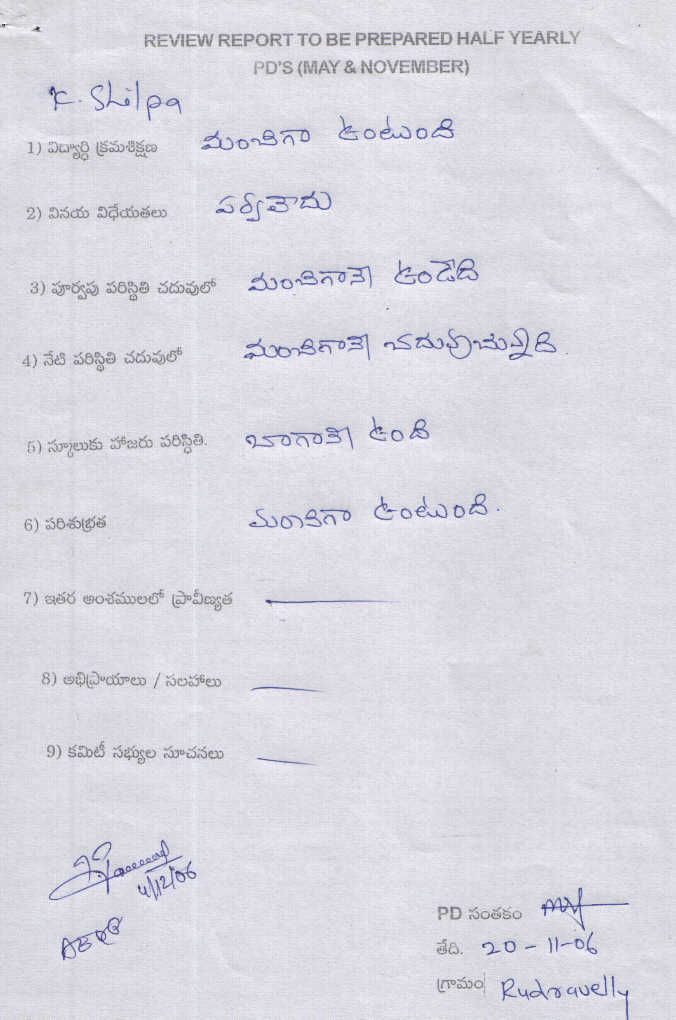 REVIEW REPORT TO BE PREPARED HALF YEARLY
PD'S (MAY & NOVEMBER)
K. Shilpa
1) విద్యార్ధి క్రమశిక్షణ మంచిగా ఉంటుంది
2) వినయ విధేయతలు పర్వలేదు
3) పూర్వపు పరిస్థితి చదువులో మంచిగానే ఉండేది
4) నేటి పరిస్థితి చదువులో మంచిగానే చదువుచున్నది.
5) స్కూలుకు హాజరు పరిస్థితి. బాగానే ఉంది
6) పరిశుభ్రత మంచిగా ఉంటుంది.
7) ఇతర అంశములలో ప్రావీణ్యత
8) అభిప్రాయాలు / సలహాలు
9) కమిటీ సభ్యుల సూచనలు
4/12/06
PD సంతకం
తేది. 20-11-06
గ్రామం Rudravelly